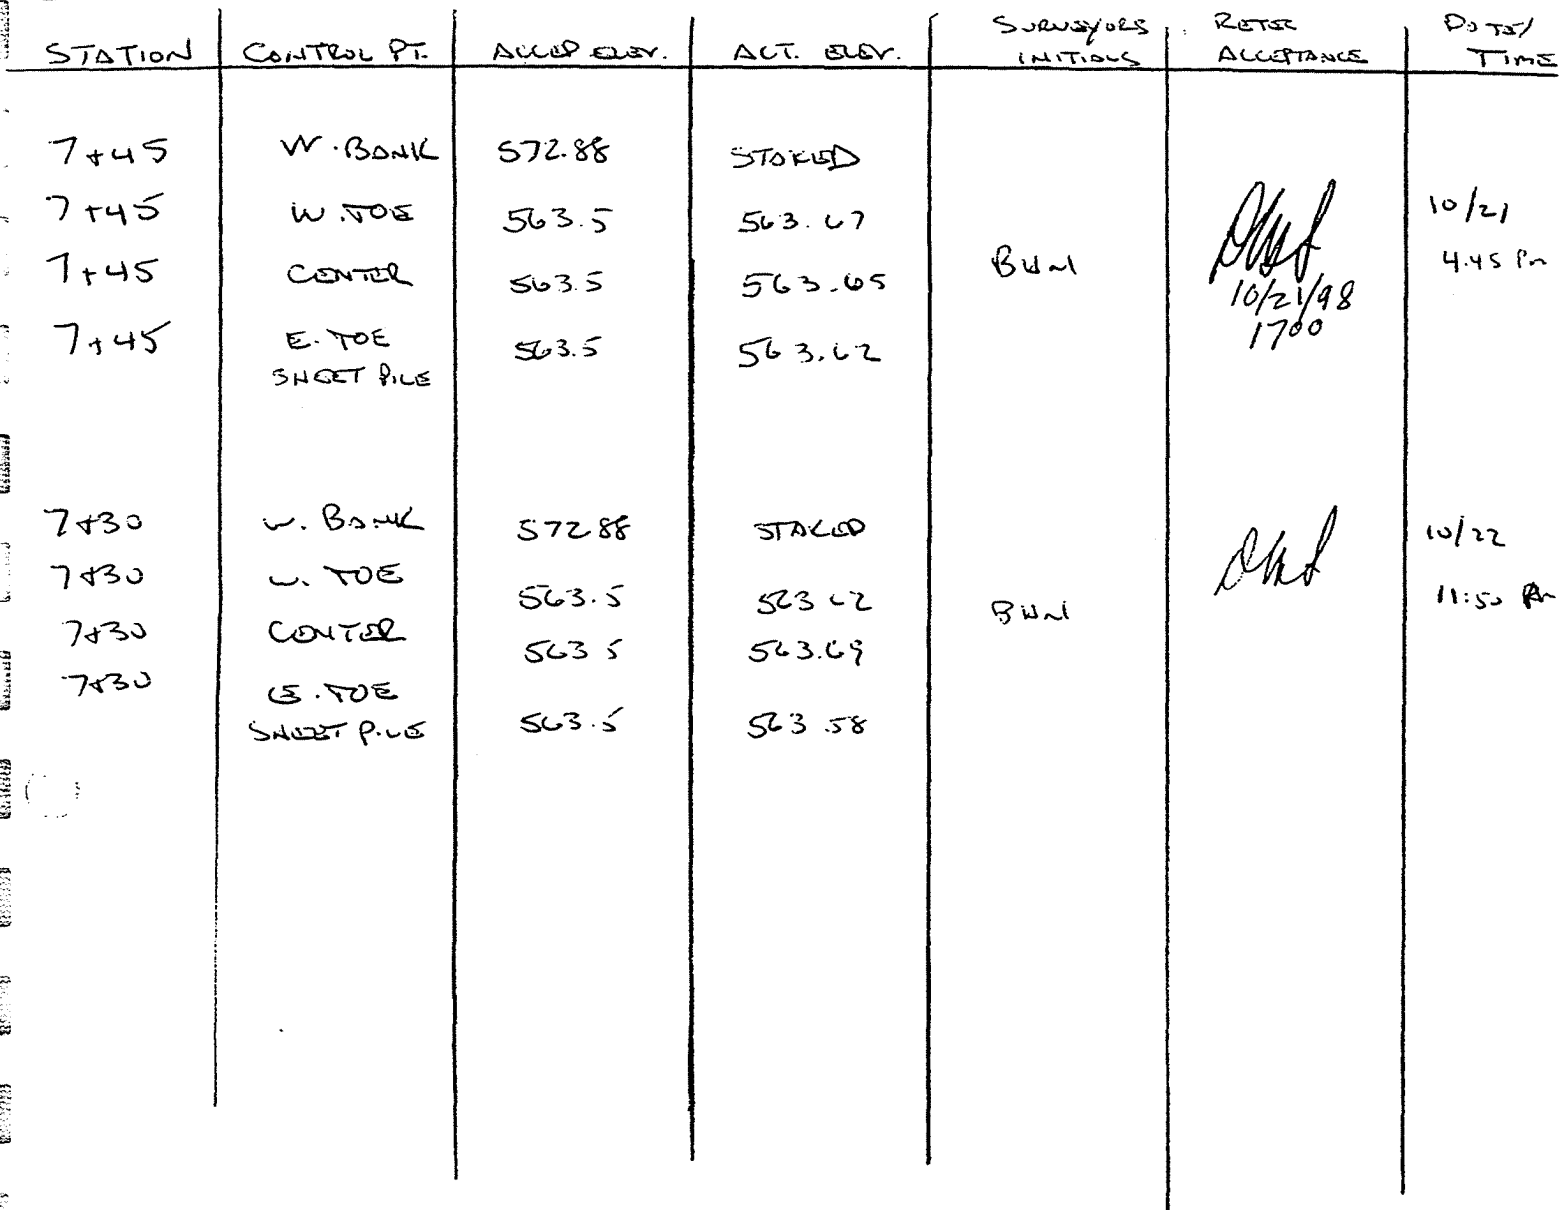 STATION CONTROL PT. ACCEP ELEV. ACT. ELEV. SURVEYORS INITIALS RETEC ACCEPTANCE DATE/ TIME
7+45 W. BANK 572.88 STAKED
7+45 W. TOE 563.5 563.67 10/21
7+45 CENTER 563.5 563.65 BWM 4:45 PM
10/21/98
7+45 E. TOE 563.5 563.62 1700
SHEET PILE
7+30 W. BANK 572.88 STAKED 10/22
7+30 W. TOE 563.5 563.62 BWM 11:50 AM
7+30 CENTER 563.5 563.69
7+30 E. TOE
SHEET PILE 563.5 563.58